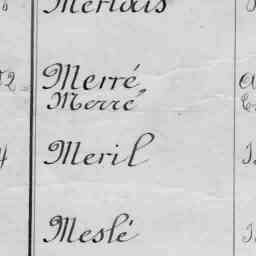 Merlais
Merré
Merré
Meril
Meslé